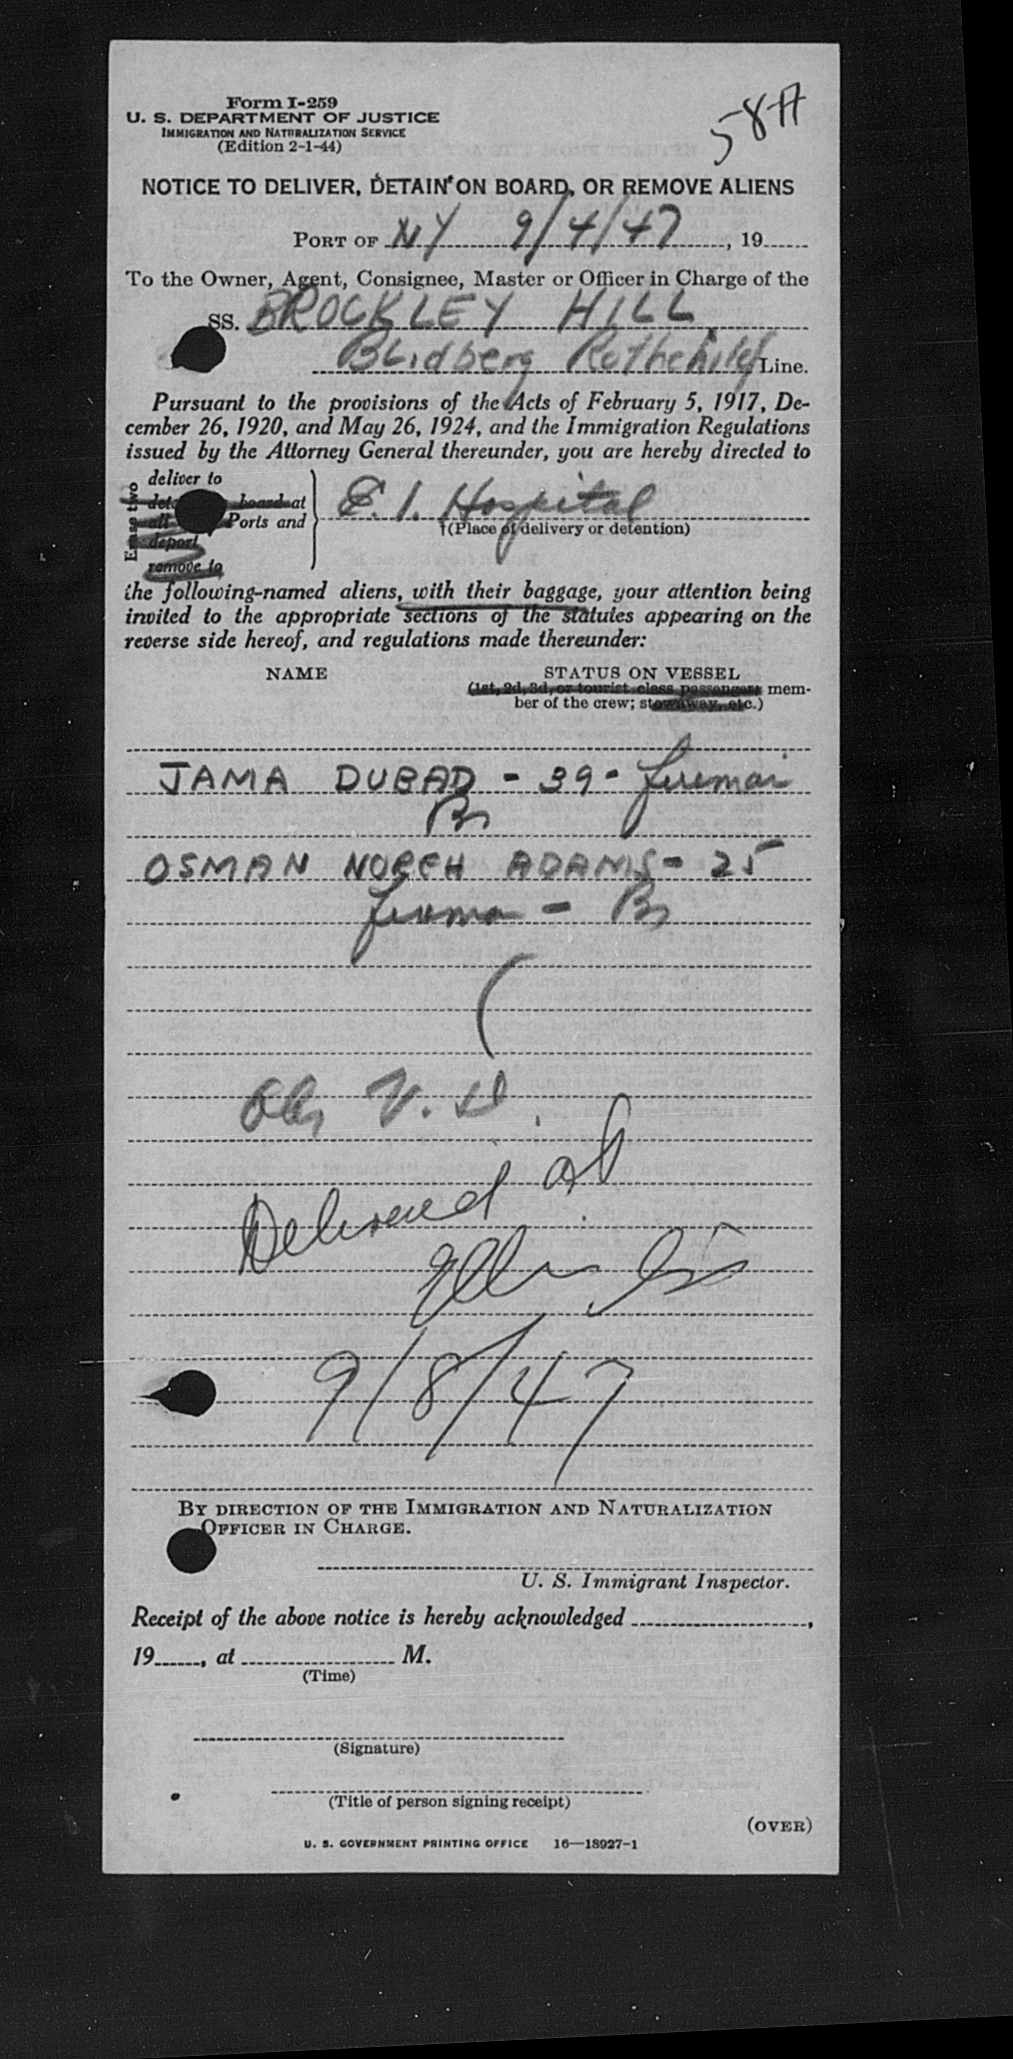 58A
Form I-259
U. S. DEPARTMENT OF JUSTICE
IMMIGRATION AND NATURALIZATION SERVICE
(Edition 2-1-44)
NOTICE TO DELIVER, DETAIN ON BOARD, OR REMOVE ALIENS
PORT OF NY 9/4/47, 19
To the Owner, Agent, Consignee, Master or Officer in Charge of the
SS. BROCKLEY HILL
Blidberg Rothchild Line.
Pursuant to the provisions of the Acts of February 5, 1917, De-
cember 26, 1920, and May 26, 1924, and the Immigration Regulations
issued by the Attorney General thereunder, you are hereby directed to
Erase two
deliver to
board at
all Ports and
deport
remove to
E. I. Hospital
†(Place of delivery or detention)
the following-named aliens, with their baggage, your attention being
invited to the appropriate sections of the statutes appearing on the
reverse side hereof, and regulations made thereunder:
NAME STATUS ON VESSEL
(1st, 2d, 3d, or tourist class passenger; mem-
ber of the crew; stowaway, etc.)
JAMA DUBAD - 39 - fireman
Br
OSMAN NOREH ADAMS - 25
fireman - Br
(
V. D.
Delivered at
Ellis Is
9/8/47
BY DIRECTION OF THE IMMIGRATION AND NATURALIZATION
OFFICER IN CHARGE.
U. S. Immigrant Inspector.
Receipt of the above notice is hereby acknowledged ,
19 , at M.
(Time)
(Signature)
(Title of person signing receipt)
(OVER)
U. S. GOVERNMENT PRINTING OFFICE 16—18927-1